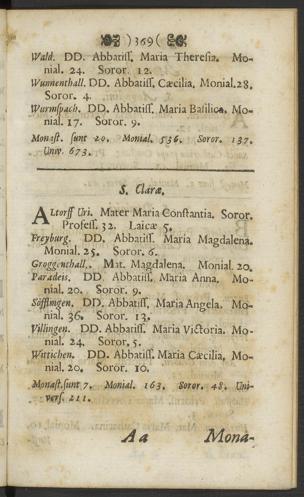 )369(
Wald. DD. Abbatiſſ. Maria Thereſia. Mo-
nial. 24. Soror. 12.
Wunnenthall. DD. Abbatiſſ. Cæcilia, Monial. 28.
Soror. 4.
Wurmſpach. DD. Abbatiſſ. Maria Baſilica, Mo-
nial. 17. Soror. 9.
Monaſt. ſunt 20. Monial. 536. Soror. 137.
Univ. 673.
S. Claræ.
ALtorff Uri. Mater Maria Conſtantia, Soror.
Profeſſ. 32. Laicæ 5.
Freyburg. DD. Abbatiſſ. Maria Magdalena.
Monial. 25. Soror. 6.
Groggenthall. Mat. Magdalena. Monial. 20.
Paradeis. DD. Abbatiſſ. Maria Anna, Mo-
nial. 20. Soror. 9.
Söfflingen. DD. Abbatiſſ. Maria Angela. Mo-
nial. 36. Soror. 13.
Villingen. DD. Abbatiſſ. Maria Victoria. Mo-
nial. 24. Soror. 5.
Wittichen. DD. Abbatiſſ. Maria Cæcilia, Mo-
nial. 20. Soror. 10.
Monaſt. ſunt 7. Monial. 163. Soror. 48. Uni-
verſ. 211.
Aa Mona-